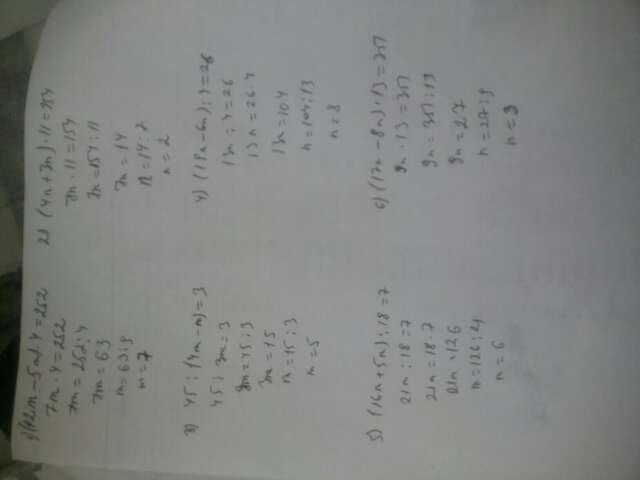 1) (12m-5m)·4=252
7m·4=252
7m=252:4
7m=63
m=63:9
m=7
2) (4n+3n)·11=154
7n·11=154
7n=154:11
7n=14
n=14:7
n=2
3) 45:(4m-m)=3
45:3m=3
3m=45:3
3m=15
m=15:3
m=5
4) (19n-6n):4=26
13n:4=26
13n=26·4
13n=104
n=104:13
n=8
5) (16n+5n):18=7
21n:18=7
21n=18·7
21n=126
n=126:21
n=6
6) (17n-8n)·13=351
9n·13=351
9n=351:13
9n=27
n=27:9
n=3